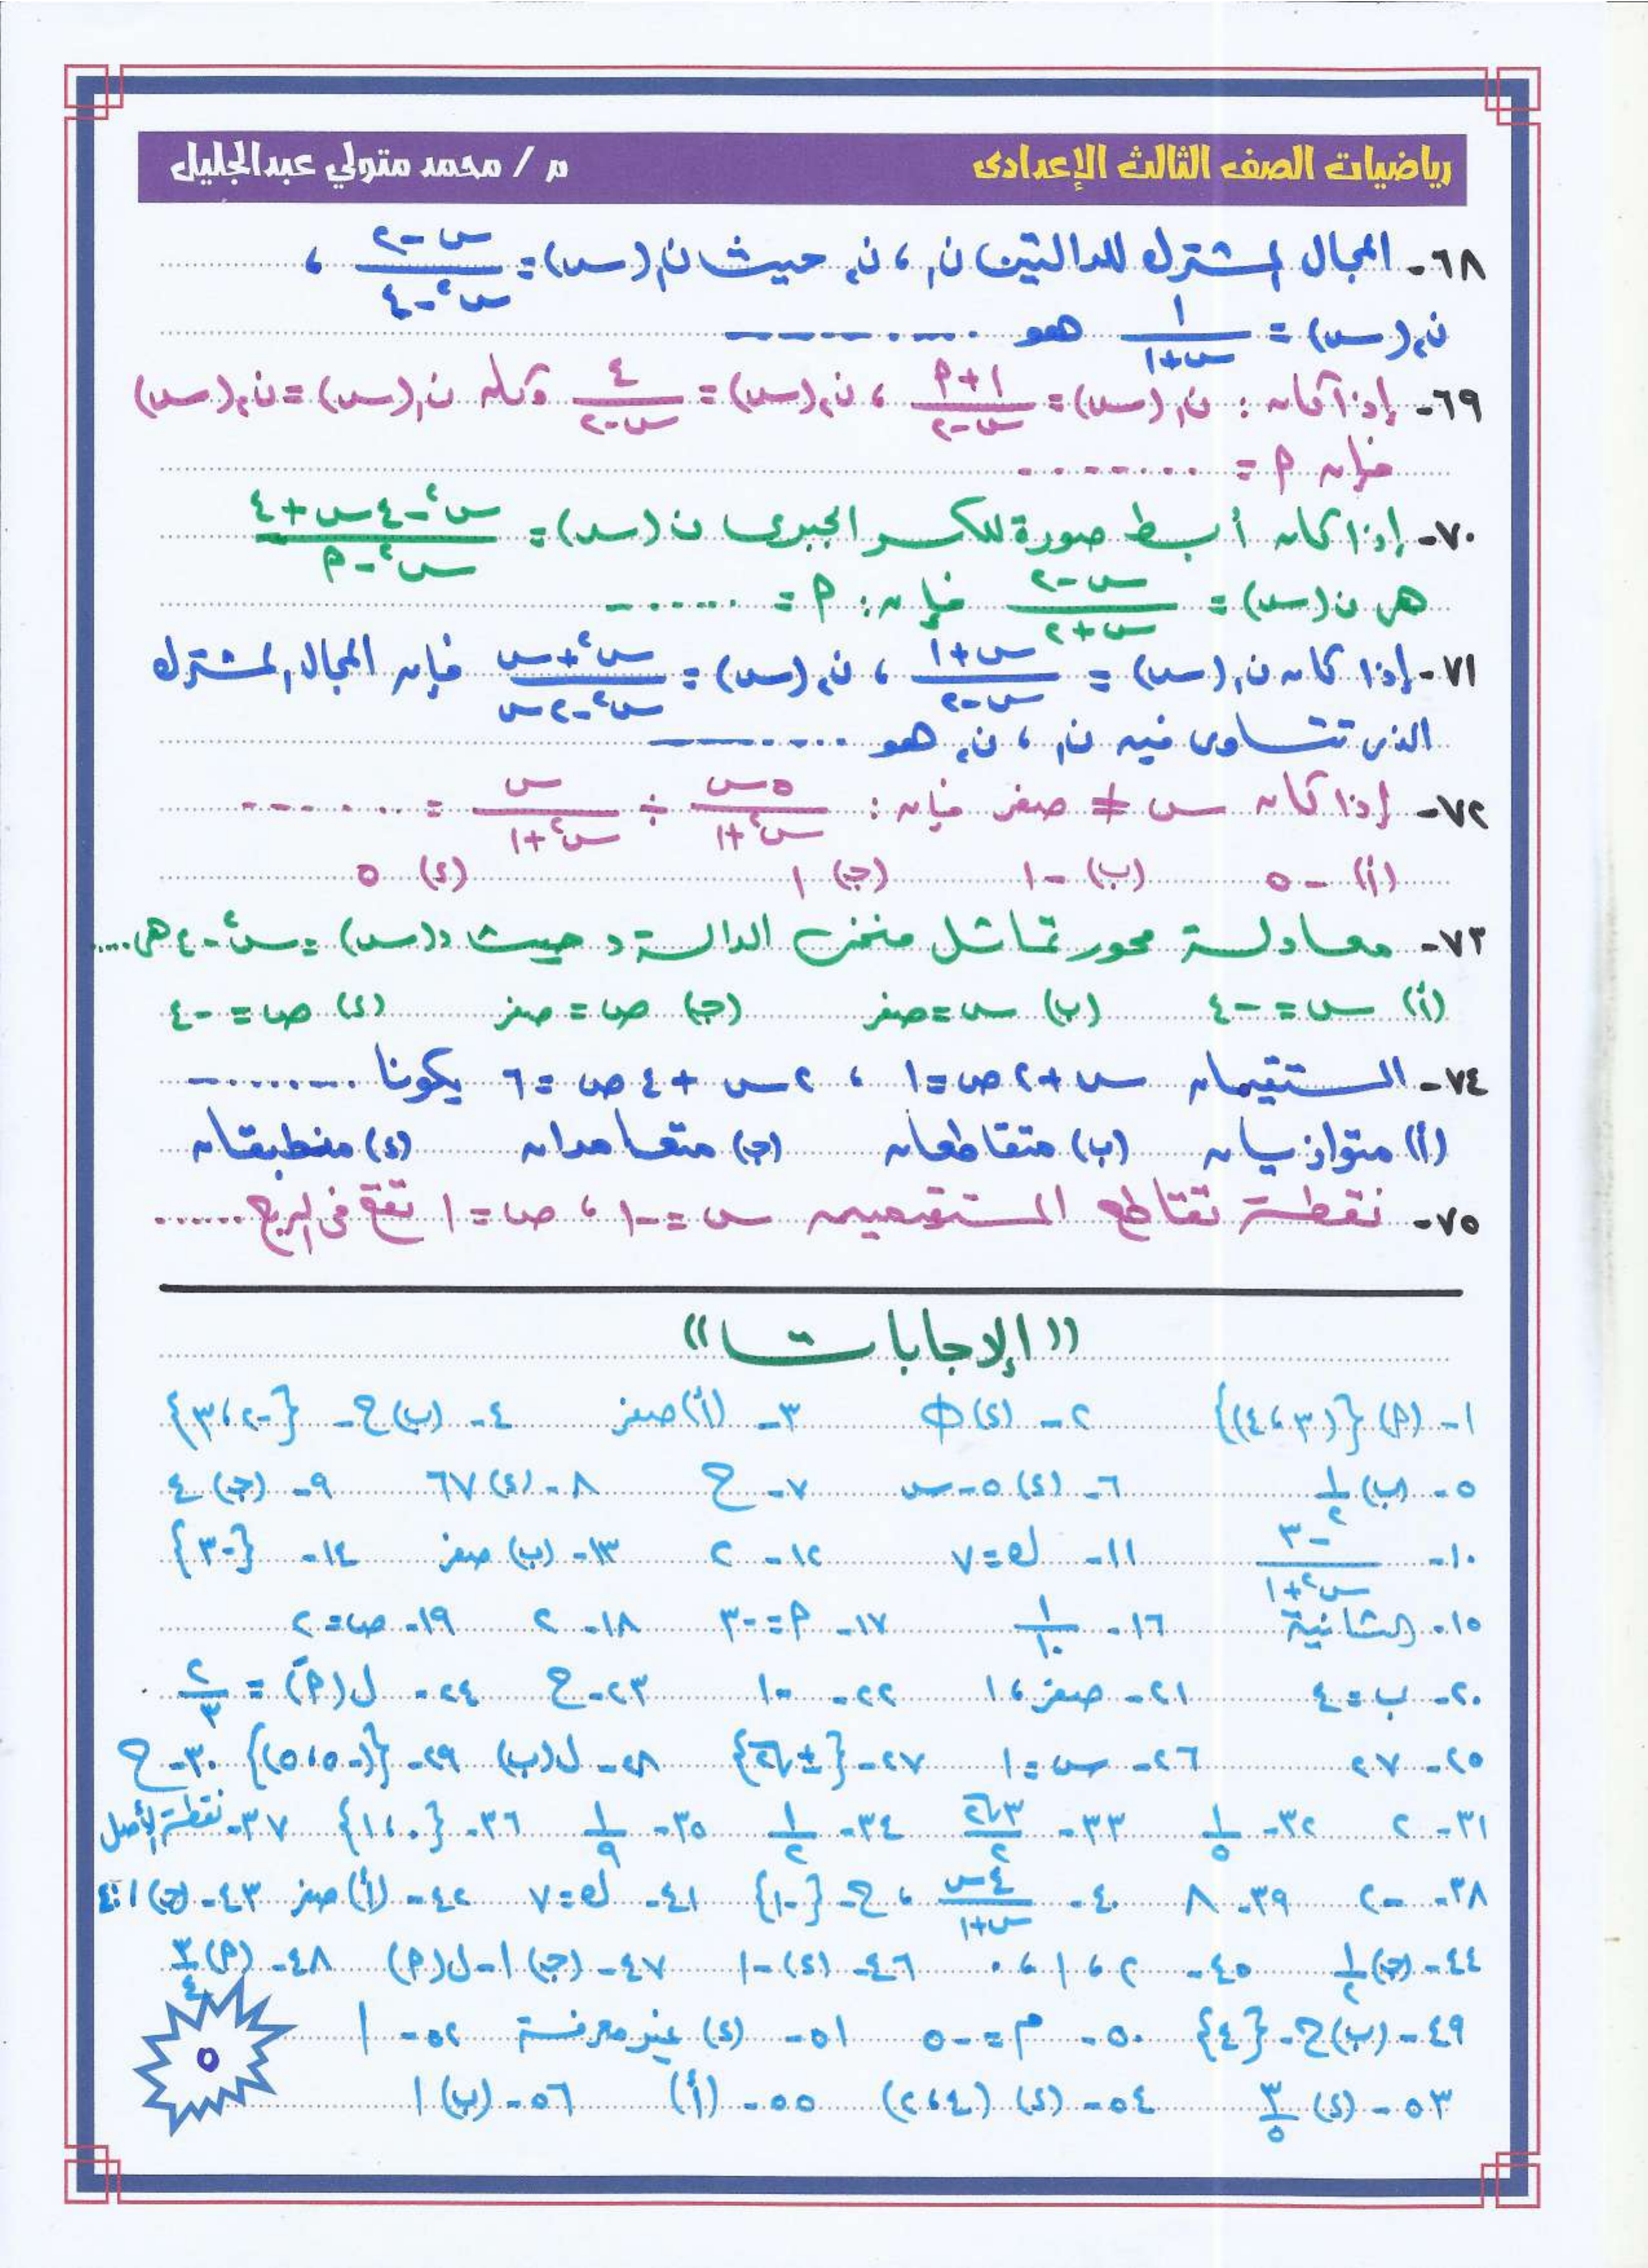 رياضيات الصف الثالث الإعدادى م / محمد متولي عبدالجليل
٦٨- المجال المشترك للدالتين ن₁ ، ن₂ حيث ن₁(س) = (س - ٢)/(س² - ٤) ،
ن₂(س) = ١/(س+١) هو ---------
٦٩- إذا كان : ن₁(س) = (١+٢)/(س-٢) ، ن₂(س) = ٤/(س-٢) وكان ن₁(س) = ن₂(س)
فإن م = ........
٧٠- إذا كان أبسط صورة للكسر الجبرى ن(س) = (س² - ٤س + ٤)/(س² - م)
هى ن(س) = (س - ٢)/(س + ٢) فإن : م = ......
٧١- إذا كان ن₁(س) = (س+١)/(س-٢) ، ن₂(س) = (س²+س)/(س²-٢س) فإن المجال المشترك
الذى تتساوى فيه ن₁ ، ن₂ هو ---------
٧٢- إذا كان س ≠ صفر فإن : ٥س/(س²+١) ÷ س/(س²+١) = ---------
(أ) -٥ (ب) -١ (ج) ١ (د) ٥
٧٣- معادلة محور تماثل منحنى الدالة د حيث د(س) = س² - ٤ هى ....
(أ) س = -٤ (ب) س = صفر (ج) ص = صفر (د) ص = -٤
٧٤- المستقيمان س + ٢ص = ١ ، ٢س + ٤ص = ٦ يكونا ---------
(أ) متوازيان (ب) متقاطعان (ج) متعامدان (د) منطبقان
٧٥- نقطة تقاطع المستقيمين س = -١ ، ص = ١ تقع فى الربع ......
(( الإجابات ))
١- (م) {(٣ ، ٤)} ٢- (د) Φ ٣- (أ) صفر ٤- (ب) ح - {-٢ ، ٣}
٥- (ب) ١/٢ ٦- (د) ٥ - س ٧- ح ٨- (د) ٦٧ ٩- (ج) ٤
١٠- -٣/(س²+١) ١١- ك = ٧ ١٢- ٢ ١٣- (ب) صفر ١٤- {-٣}
١٥- الثانية ١٦- ١/١٠ ١٧- م = -٣ ١٨- ٢ ١٩- ص = ٢
٢٠- ب = ٤ ٢١- صفر ، ١ ٢٢- -١ ٢٣- ح ٢٤- ل(مَ) = ٢/٣
٢٥- ٢٧ ٢٦- س = ١ ٢٧- {±√٢} ٢٨- ل(ب) ٢٩- {(-٥ ، ٥)} ٣٠- ح
٣١- ٢ ٣٢- ١/٥ ٣٣- ٣√٢/٢ ٣٤- ١/٢ ٣٥- ١/٩ ٣٦- {٠ ، ١} ٣٧- نقطة الأصل
٣٨- -٢ ٣٩- ٨ ٤٠- ٤س/(س+١) ، ح - {-١} ٤١- ك = ٧ ٤٢- (أ) صفر ٤٣- (ج) ١ : ٤
٤٤- (ج) ١/٢ ٤٥- ٢ ، ١ ، ٠ ٤٦- (د) -١ ٤٧- (ج) ١ - ل(م) ٤٨- (م) ٣/٤
٤٩- (ب) ح - {٤} ٥٠- م = -٥ ٥١- (د) غير معرفة ٥٢- ١
٥٣- (د) ٣/٥ ٥٤- (د) (٤ ، ٢) ٥٥- (أ) ٥٦- (ب) ١
٥